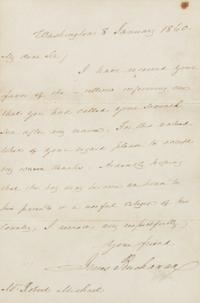 Washington 8 January 1860.
My dear Sir,
I have received your
favor of the informing me
that you had called your
son after my name. For this
of your regard please to accept
my warm thanks. Ardently hoping
that the boy may be an honor to
his parents & a useful citizen of his
country, I remain, very respectfully
Your friend
James Buchanan
Mr Robert Michael